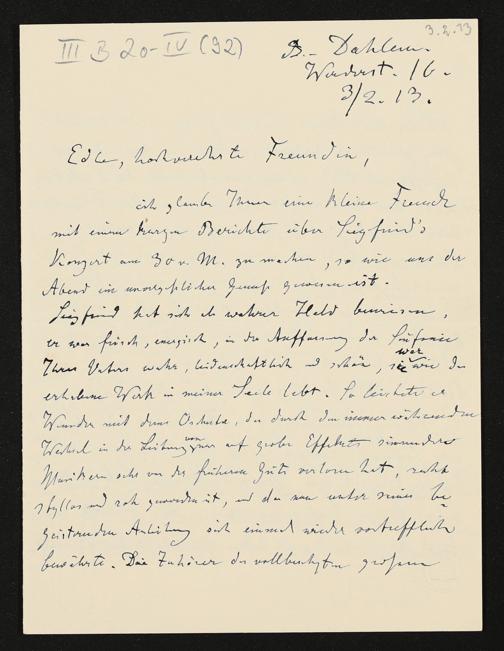 3.2.13
III B 20-IV (92)
B.- Dahlem.
Werderst. 16.
3/2.13.
Edle, hochverehrte Freundin,
ich glaube Ihnen eine kleine Freude
mit einem kurzen Berichte über Siegfried's
Konzert am 30 v. M. zu machen, so wie uns der
Abend ein unvergeßlicher Genuß gewesen ist.
Siegfried hat sich als wahrer Held bewiesen,
er war frisch, energisch, in der Auffassung der
Ihres Vaters wahr, leidenschaftlich und schön, wie das
erhabene Werk in meiner Seele lebt. So leistete er
Wunder mit dem Orchester, das durch den immerwährenden
Wechsel in der Leitung von auf grobe Effekte
Musikern sehr von der früheren Güte verloren hat, recht
styllos und roh geworden ist, und das nun unter seiner be-
geisternden Anleitung sich einmal wieder vortrefflich
bewährte. Die Zuhörer des vollbesetzten großen